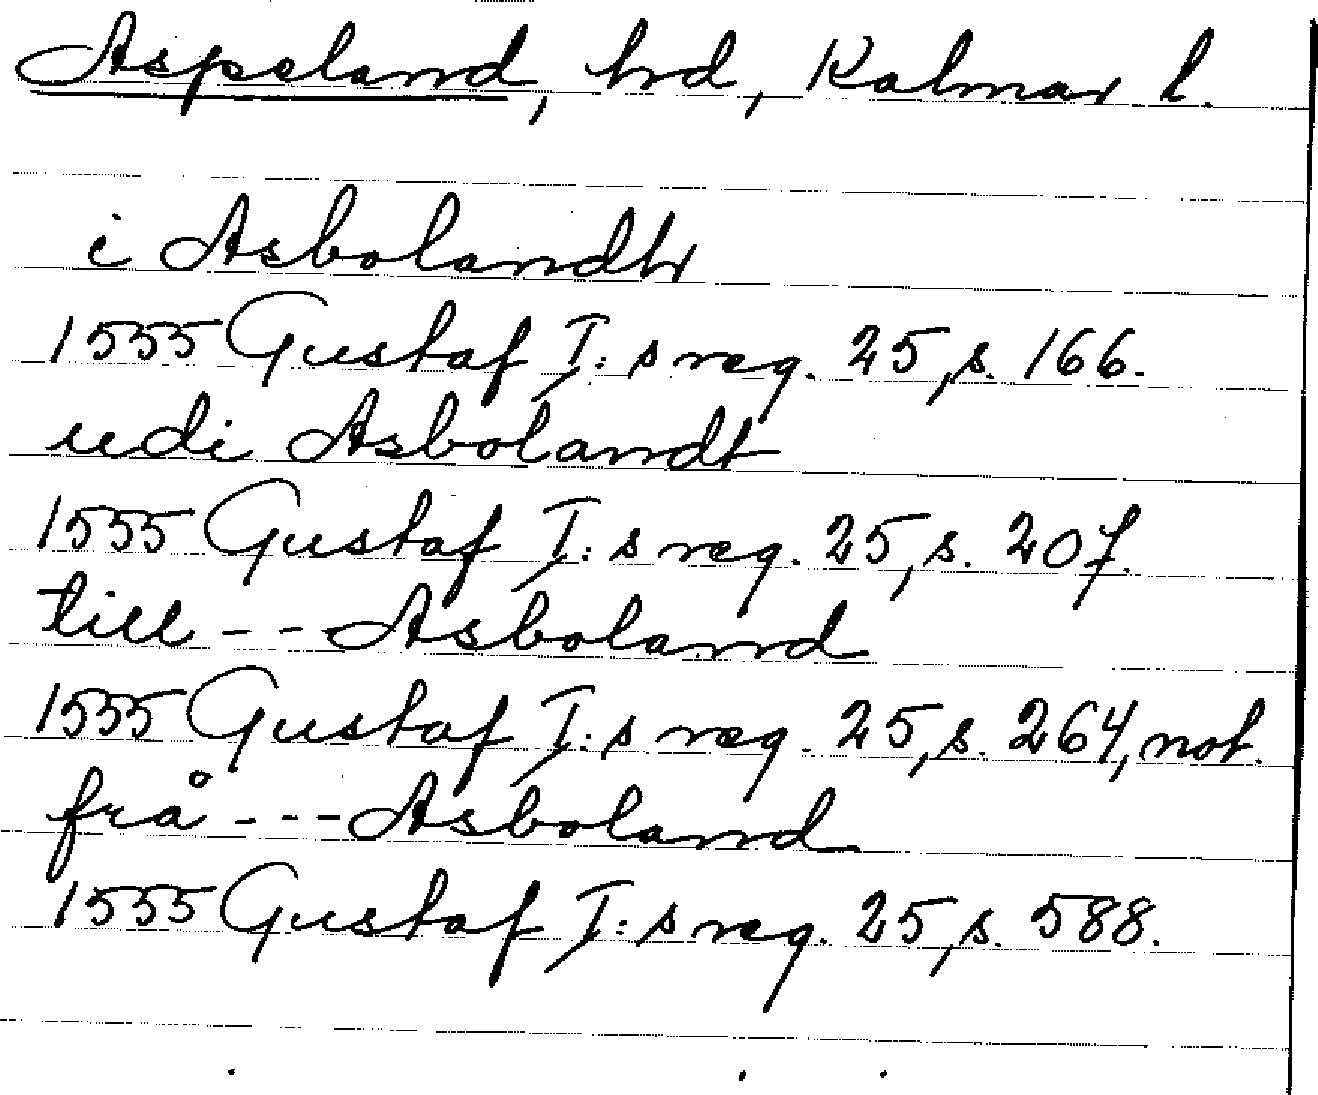 Aspeland, hrd, Kalmar l.
i Asbolandh
1555 Gustaf I:s reg. 25, s. 166.
udi Asbolandt
1555 Gustaf I:s reg. 25, s. 207.
till --- Asboland
1555 Gustaf I:s reg. 25, s. 264, not.
frå --- Asboland
1555 Gustaf I:s reg. 25, s. 588.